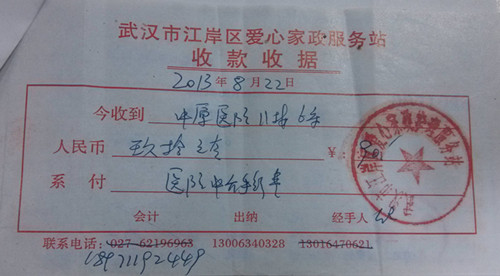 武汉市江岸区爱心家政服务站
收款收据
2013年8月22日
今收到 中原医院11楼6床
人民币 玖拾元 ¥
系付 医院中介手续费
会计 出纳 经手人
联系电话：027-62196963 13006340328 13016470621
18971192449